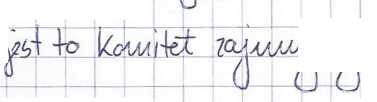 jest to komitet zajmu